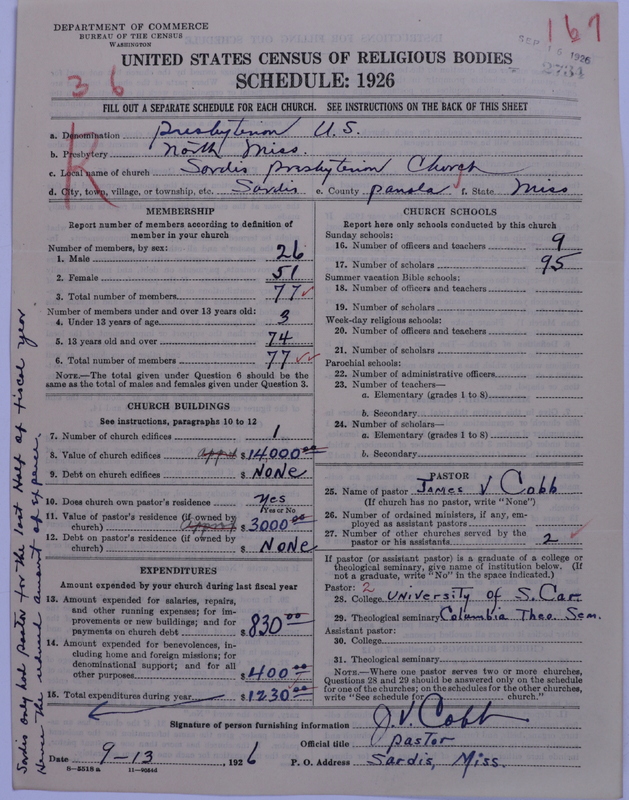 DEPARTMENT OF COMMERCE
BUREAU OF THE CENSUS
WASHINGTON
167
SEP 16 1926
2734
UNITED STATES CENSUS OF RELIGIOUS BODIES
SCHEDULE: 1926
36
FILL OUT A SEPARATE SCHEDULE FOR EACH CHURCH. SEE INSTRUCTIONS ON THE BACK OF THIS SHEET
K
a. Denomination Presbyterian U.S.
b. Presbytery North Miss.
c. Local name of church Sardis Presbyterian Church
d. City, town, village, or township, etc. Sardis e. County Panola f. State Miss
MEMBERSHIP
Report number of members according to definition of
member in your church
Number of members, by sex:
1. Male 26
2. Female 51
3. Total number of members 77
Number of members under and over 13 years old:
4. Under 13 years of age 3
5. 13 years old and over 74
6. Total number of members 77
NOTE.—The total given under Question 6 should be the
same as the total of males and females given under Question 3.
CHURCH BUILDINGS
See instructions, paragraphs 10 to 12
7. Number of church edifices 1
8. Value of church edifices $14000.00
9. Debt on church edifices $ NONe
10. Does church own pastor's residence yes
Yes or No
11. Value of pastor's residence (if owned by
church) $3000.00
12. Debt on pastor's residence (if owned by
church) $ NONe
EXPENDITURES
Amount expended by your church during last fiscal year
13. Amount expended for salaries, repairs,
and other running expenses; for im-
provements or new buildings; and for
payments on church debt $830.00
14. Amount expended for benevolences, in-
cluding home and foreign missions; for
denominational support; and for all
other purposes $400.00
15. Total expenditures during year $1230.00
Sardis only had Pastor for the last Half of fiscal year
Hence the reduced amount of expense.
CHURCH SCHOOLS
Report here only schools conducted by this church
Sunday schools:
16. Number of officers and teachers 9
17. Number of scholars 95
Summer vacation Bible schools:
18. Number of officers and teachers
19. Number of scholars
Week-day religious schools:
20. Number of officers and teachers
21. Number of scholars
Parochial schools:
22. Number of administrative officers
23. Number of teachers—
a. Elementary (grades 1 to 8)
b. Secondary
24. Number of scholars—
a. Elementary (grades 1 to 8)
b. Secondary
PASTOR
25. Name of pastor James V Cobb
(If church has no pastor, write "None")
26. Number of ordained ministers, if any, em-
ployed as assistant pastors
27. Number of other churches served by the
pastor or his assistants 2
If pastor (or assistant pastor) is a graduate of a college or
theological seminary, give name of institution below. (If
not a graduate, write "No" in the space indicated.)
Pastor: 2
28. College University of S. Car.
29. Theological seminary Columbia Theo. Sem.
Assistant pastor:
30. College
31. Theological seminary
NOTE.—Where one pastor serves two or more churches,
Questions 28 and 29 should be answered only on the schedule
for one of the churches; on the schedules for the other churches,
write "See schedule for church."
Signature of person furnishing information J.V. Cobb
Official title Pastor
Date 9-13, 1926 P. O. Address Sardis, Miss.
8—5518 a 11—9064d